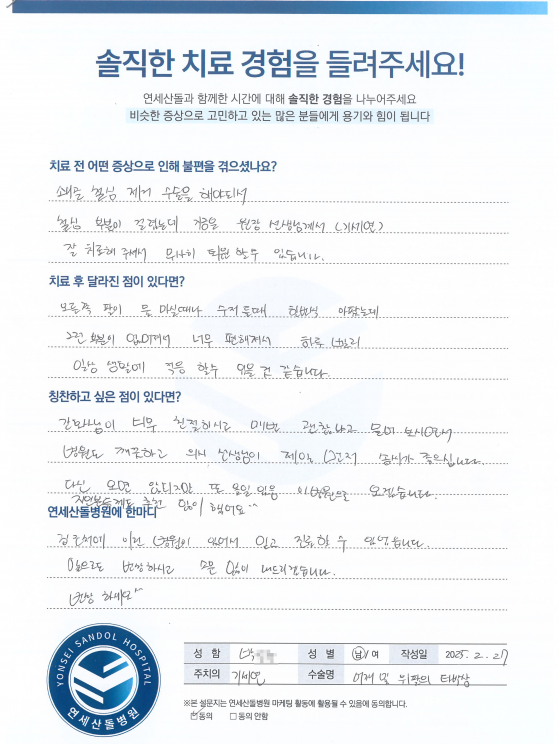 솔직한 치료 경험을 들려주세요!
연세산돌과 함께한 시간에 대해 솔직한 경험을 나누어주세요
비슷한 증상으로 고민하고 있는 많은 분들에게 용기와 힘이 됩니다
치료 전 어떤 증상으로 인해 불편을 겪으셨나요?
쇄골 철심 제거 수술을 해야되서
철심 부분이 걸렸는데 원장 선생님께서 (기세연)
잘 치료해 주셔서 무사히 퇴원 할 수 있습니다.
치료 후 달라진 점이 있다면?
오른쪽 팔이 물 마실때나 수저 들때 한번씩 아팠는데
그런 부분이 없어져서 너무 편해져서 하루 빨리
일상 생활에 적응 할수 있을 것 같습니다.
칭찬하고 싶은 점이 있다면?
간호사님이 너무 친절하시고 매번 괜찮냐고 물어 보시면서
병원도 깨끗하고 의사 선생님이 제일 솜씨가 좋으십니다.
다신 오면 안되지만 또 올일 있음 이병원으로 오겠습니다.
지인분들께도 추천 많이 했어요^^
연세산돌병원에 한마디
검단에 이런 병원이 있어서 믿고 진료할 수 있었습니다.
앞으로도 번창하시고 소문 많이 내드리겠습니다.
번창 하세요^^
YONSEI SANDOL HOSPITAL
연세산돌병원
성 함 박 성 별 남/여 작성일 2025. 2. 27
주치의 기세연 수술명 어깨 및 위팔의 타박상
※본 설문지는 연세산돌병원 마케팅 활동에 활용될 수 있음에 동의합니다.
동의 □동의 안함